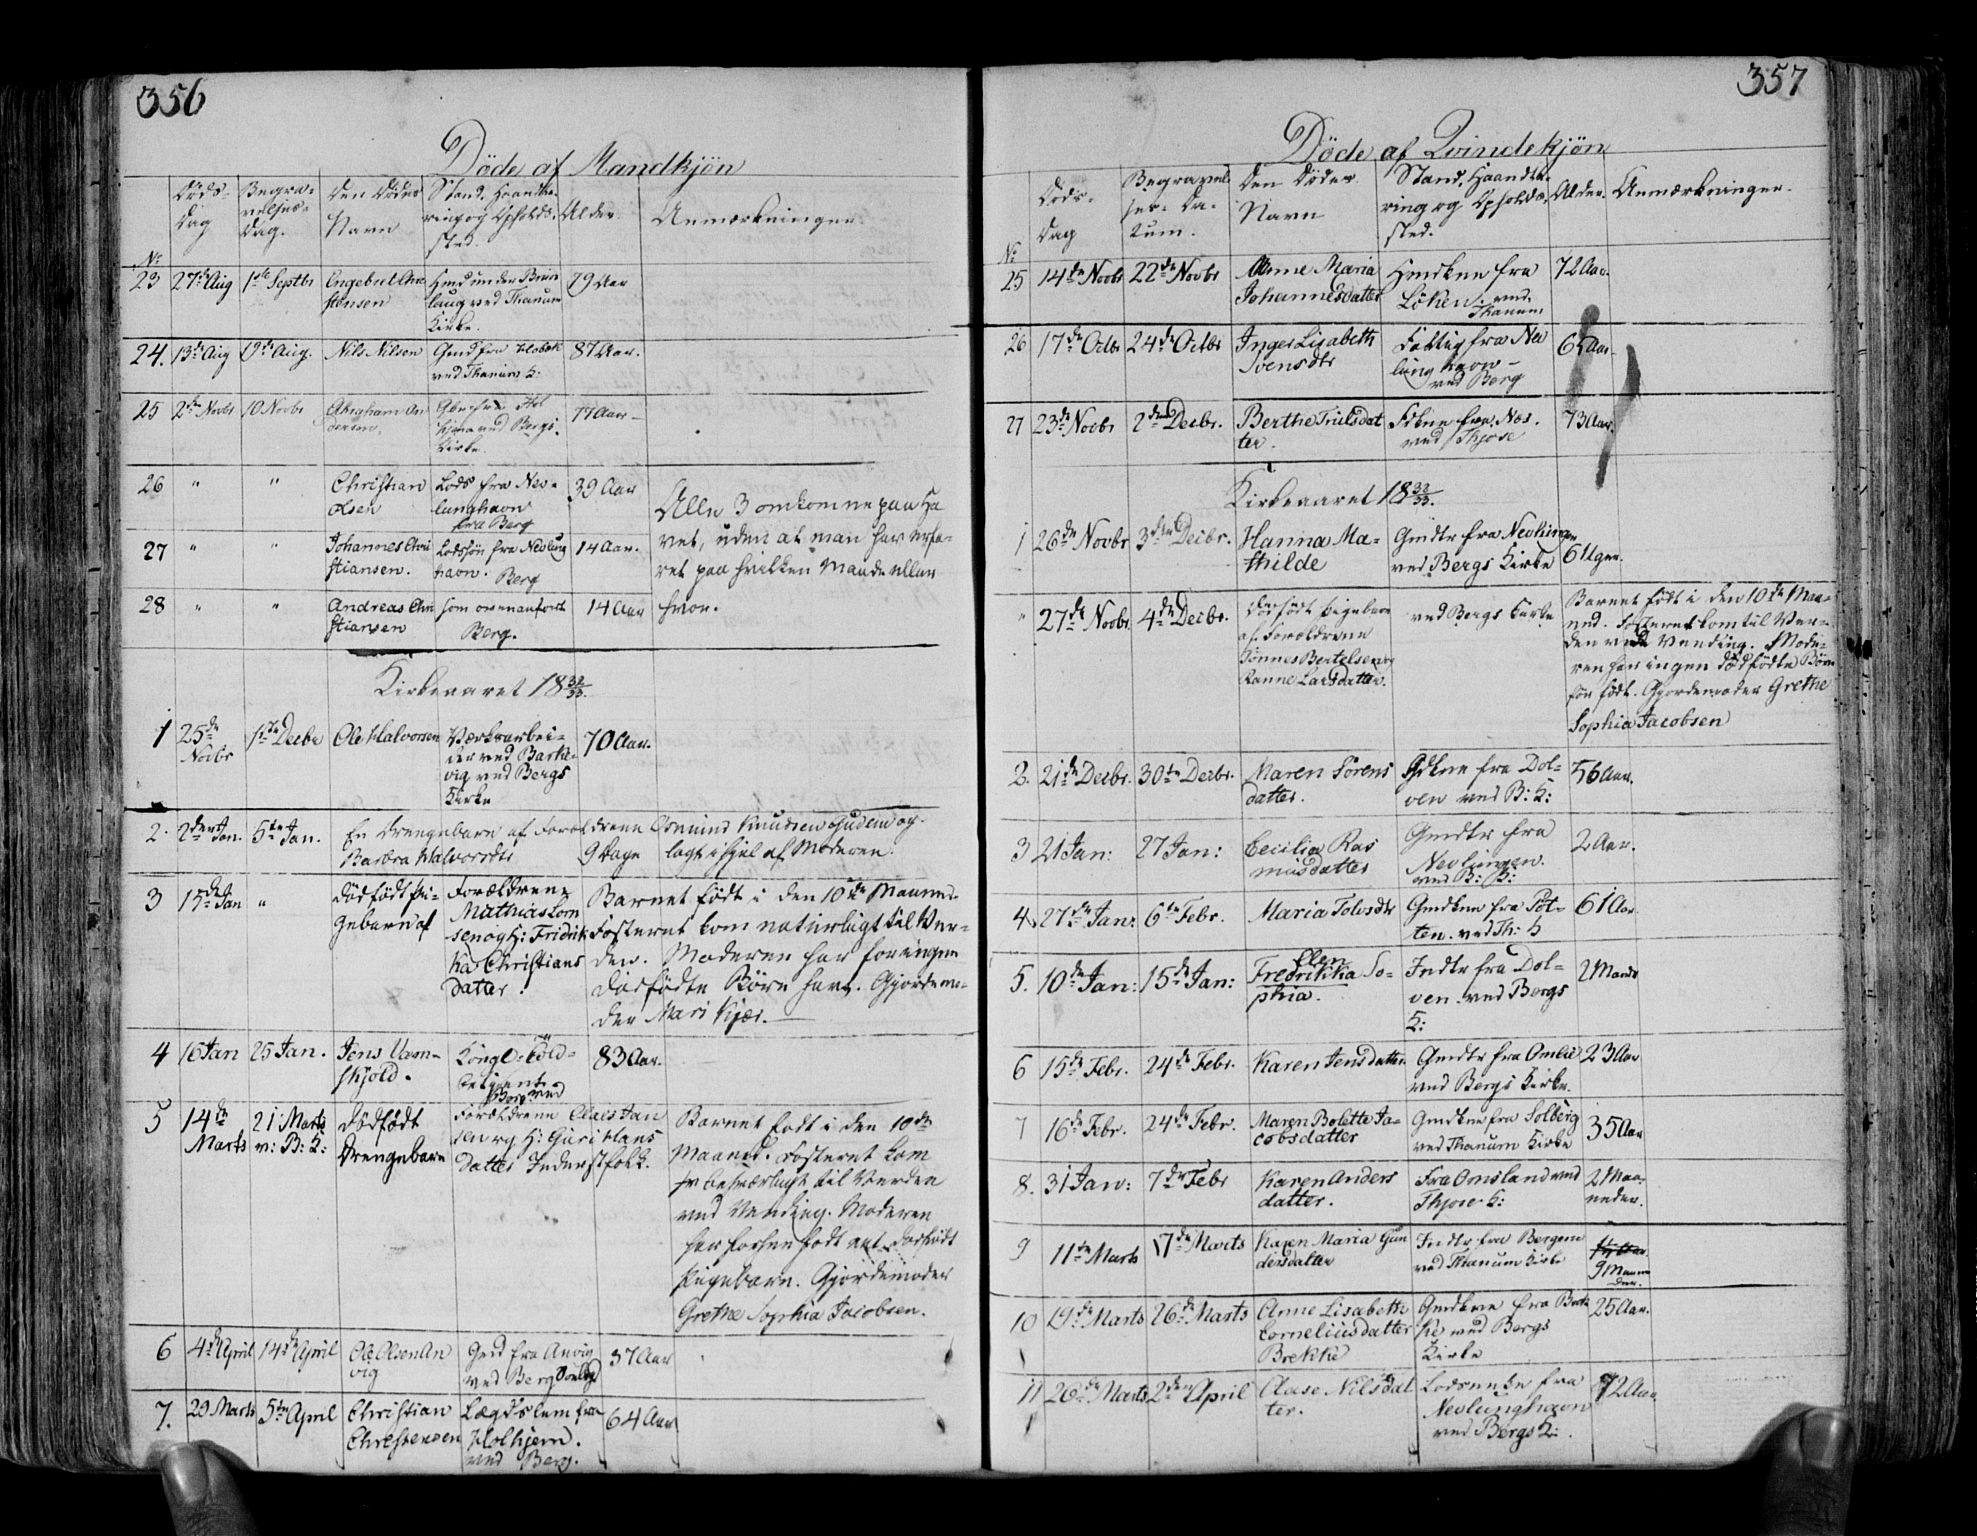 356
Døde af Mandkjøn
Døds-
Dag
Begra-
velses-
Dag.
Den Dødes
Navn
Stand, Haandte-
ring og Opholds-
sted.
Alder
Anmærkninger
No
23 27de Aug 1ste Septbr Engebret Chri
stensen
ved Thanum
Kirke.
79 Aar
24. 13de Aug 19de Aug. Nils Nilsen Gmd fra
ved Thanum K:
87 Aar.
25 2den Novbr 10 Novbr Abraham An
dersen.
ved Bergs
Kirke.
77 Aar
26 " " Christian
Olsen
Lods fra Nev-
lunghavn
fra Berg
39 Aar
27 " " Johannes Chri
stiansen.
Lodssøn fra Nevlung
havn. Berg
14 Aar.
28 " " Andreas Chri
stiansen
som ovenanført
Berg.
14 Aar
Alle 3 omkomne paa Ha
vet, uden at man har erfa-
ret paa hvilken Maade eller
hvor.
Kirkeaaret 18 32/33.
1 25de
Novbr
1ste Decbr Ole Halvorsen Værkarbei-
der ved Barke-
vig ved Bergs
Kirke
70 Aar.
2. 2den Jan. 5te Jan. En Drengebarn af Forældrene Osmund Knudsen Guden og
Barbra Halvorsdtr 9 Dage lagt ihjel af Moderen.
3 15de Jan " Dødfødt Pi-
gebarn af
Forældrene
Mathias Lorn
sen og H: Fridrik
ka Christians
datter.
Barnet født i den 10de Maaned.
Fosteret kom naturligt til Ver-
den. Moderen har før ingen
dødfødte Børn havt. Gjordemo-
der Mari Kjær.
4 16 Jan 25 Jan. Jens Varn-
skjold.
Kongl: Told-
Berg ved
83 Aar.
5 14de
Marts
21 Marts
v: B: K:
Dødfødt
Drengebarn
Forældrene Claes Jan
sen og H: Guri Hans
datter Inderstfolk.
Barnet født i den 10de
Maaned. Fosteret kom
besværligt til Verden
ved Vending. Moderen
har forhen født et dødfødt
Pigebarn. Gjordemoder
Grethe Sophia Jacobsen.
6 4de April 14de April Ole Olsen An
vig
Gmd fra Anvig
ved Berg
37 Aar
7. 29 Marts 5te April Christian
Christensen
Lægdslem fra
Holhjem.
ved Berg.
64 Aar
357
Døde af Qvindekjøn
Døds-
Dag
Begravel
ses-Da-
tum.
Den Dødes
Navn
Stand, Haandte-
ring og Opholds-
sted.
Alder.
Anmærkninger.
No
25 14de Novbr 22de Novbr Anne Maria
Johannesdatter
Hmdkne fra
Löken. ved
Thanum
72 Aar.
26 17de Octbr 24de Octbr Inger Lisabeth
Svensdtr
Fattig fra Nev
lunghavn
ved Berg
65 Aar
27 23de Novbr 2den Decbr. Berthe Trulsdat
ter.
fra Nes.
ved Thjose
73 Aar.
Kirkeaaret 18 32/33.
1 26de Novbr 3die Decbr. Hanna Ma-
thilde
Gmdtr fra Nevlungen
ved Bergs Kirke
6 Uger.
" 27de Novbr. 4de Decbr. Dødfødt Pigebarn
af Forældrene
Tönnes Bertelsen og
Hanne Larsdatter.
ved Bergs Kirke
Barnet født i den 10de Maa-
ned. Fosteret kom til Ver-
den ved Vending. Mode-
ren har ingen dødfødte Børn
før født. Gjordemoder Grethe
Sophia Jacobsen
2. 21de Decbr. 30te Decbr. Maren Sörens
datter.
Gdkne fra Dol-
ven ved B: K:
56 Aar.
3 21 Jan: 27 Jan: Cecilia Ras
musdatter
Gmdtr fra
Nevlungen.
ved B: K:
2 Aar.
4 27de Jan: 6te Febr. Maria Tolvsdtr Gmdkne fra Pöt-
ten. ved Th: K
61 Aar
5. 10de Jan: 15de Jan: Elen
Fredrikka So-
phia.
Indtr fra Dol-
ven. ved Bergs
K:
2 Maaneder
6 15de Febr. 24de Febr. Karen Jensdatter Gmdtr fra Omlid
ved Bergs Kirke.
23 Aar
7 16de Febr. 24de Febr. Maren Bolette Ja-
cobsdatter
Gmdkne fra Solberg
ved Thanum Kirke
35 Aar
8. 31 Jan: 7de Febr Karen Anders
datter.
Fra Omsland ved
Thjose K:
2 Maa-
neder.
9 11te Marts 17de Marts Karen Maria Gun
dersdatter
Indtr fra Bergene
ved Thanum Kirke
9 Maane
der.
10 19de Marts 26de Marts Anne Lisabeth
Corneliusdatter
Brekke
Gmdkne fra Brek
ke ved Bergs
Kirke
25 Aar.
11 26de Marts 2den April Aase Nilsdat
ter.
Lodsenke fra
Nevlunghavn
ved Bergs K:
72 Aar.